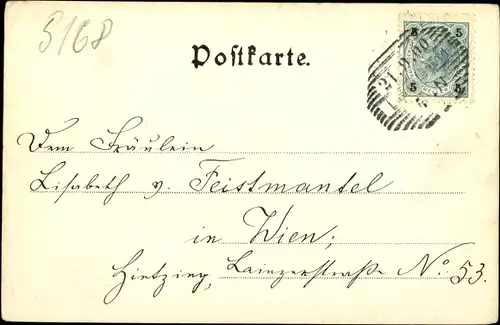 5168
Postkarte.
5 5
21.9.00
5 5
Dem Fräulein
Lisabeth v. Feistmantel
in Wien;
Hietzing, Lainzerstraße No: 53.